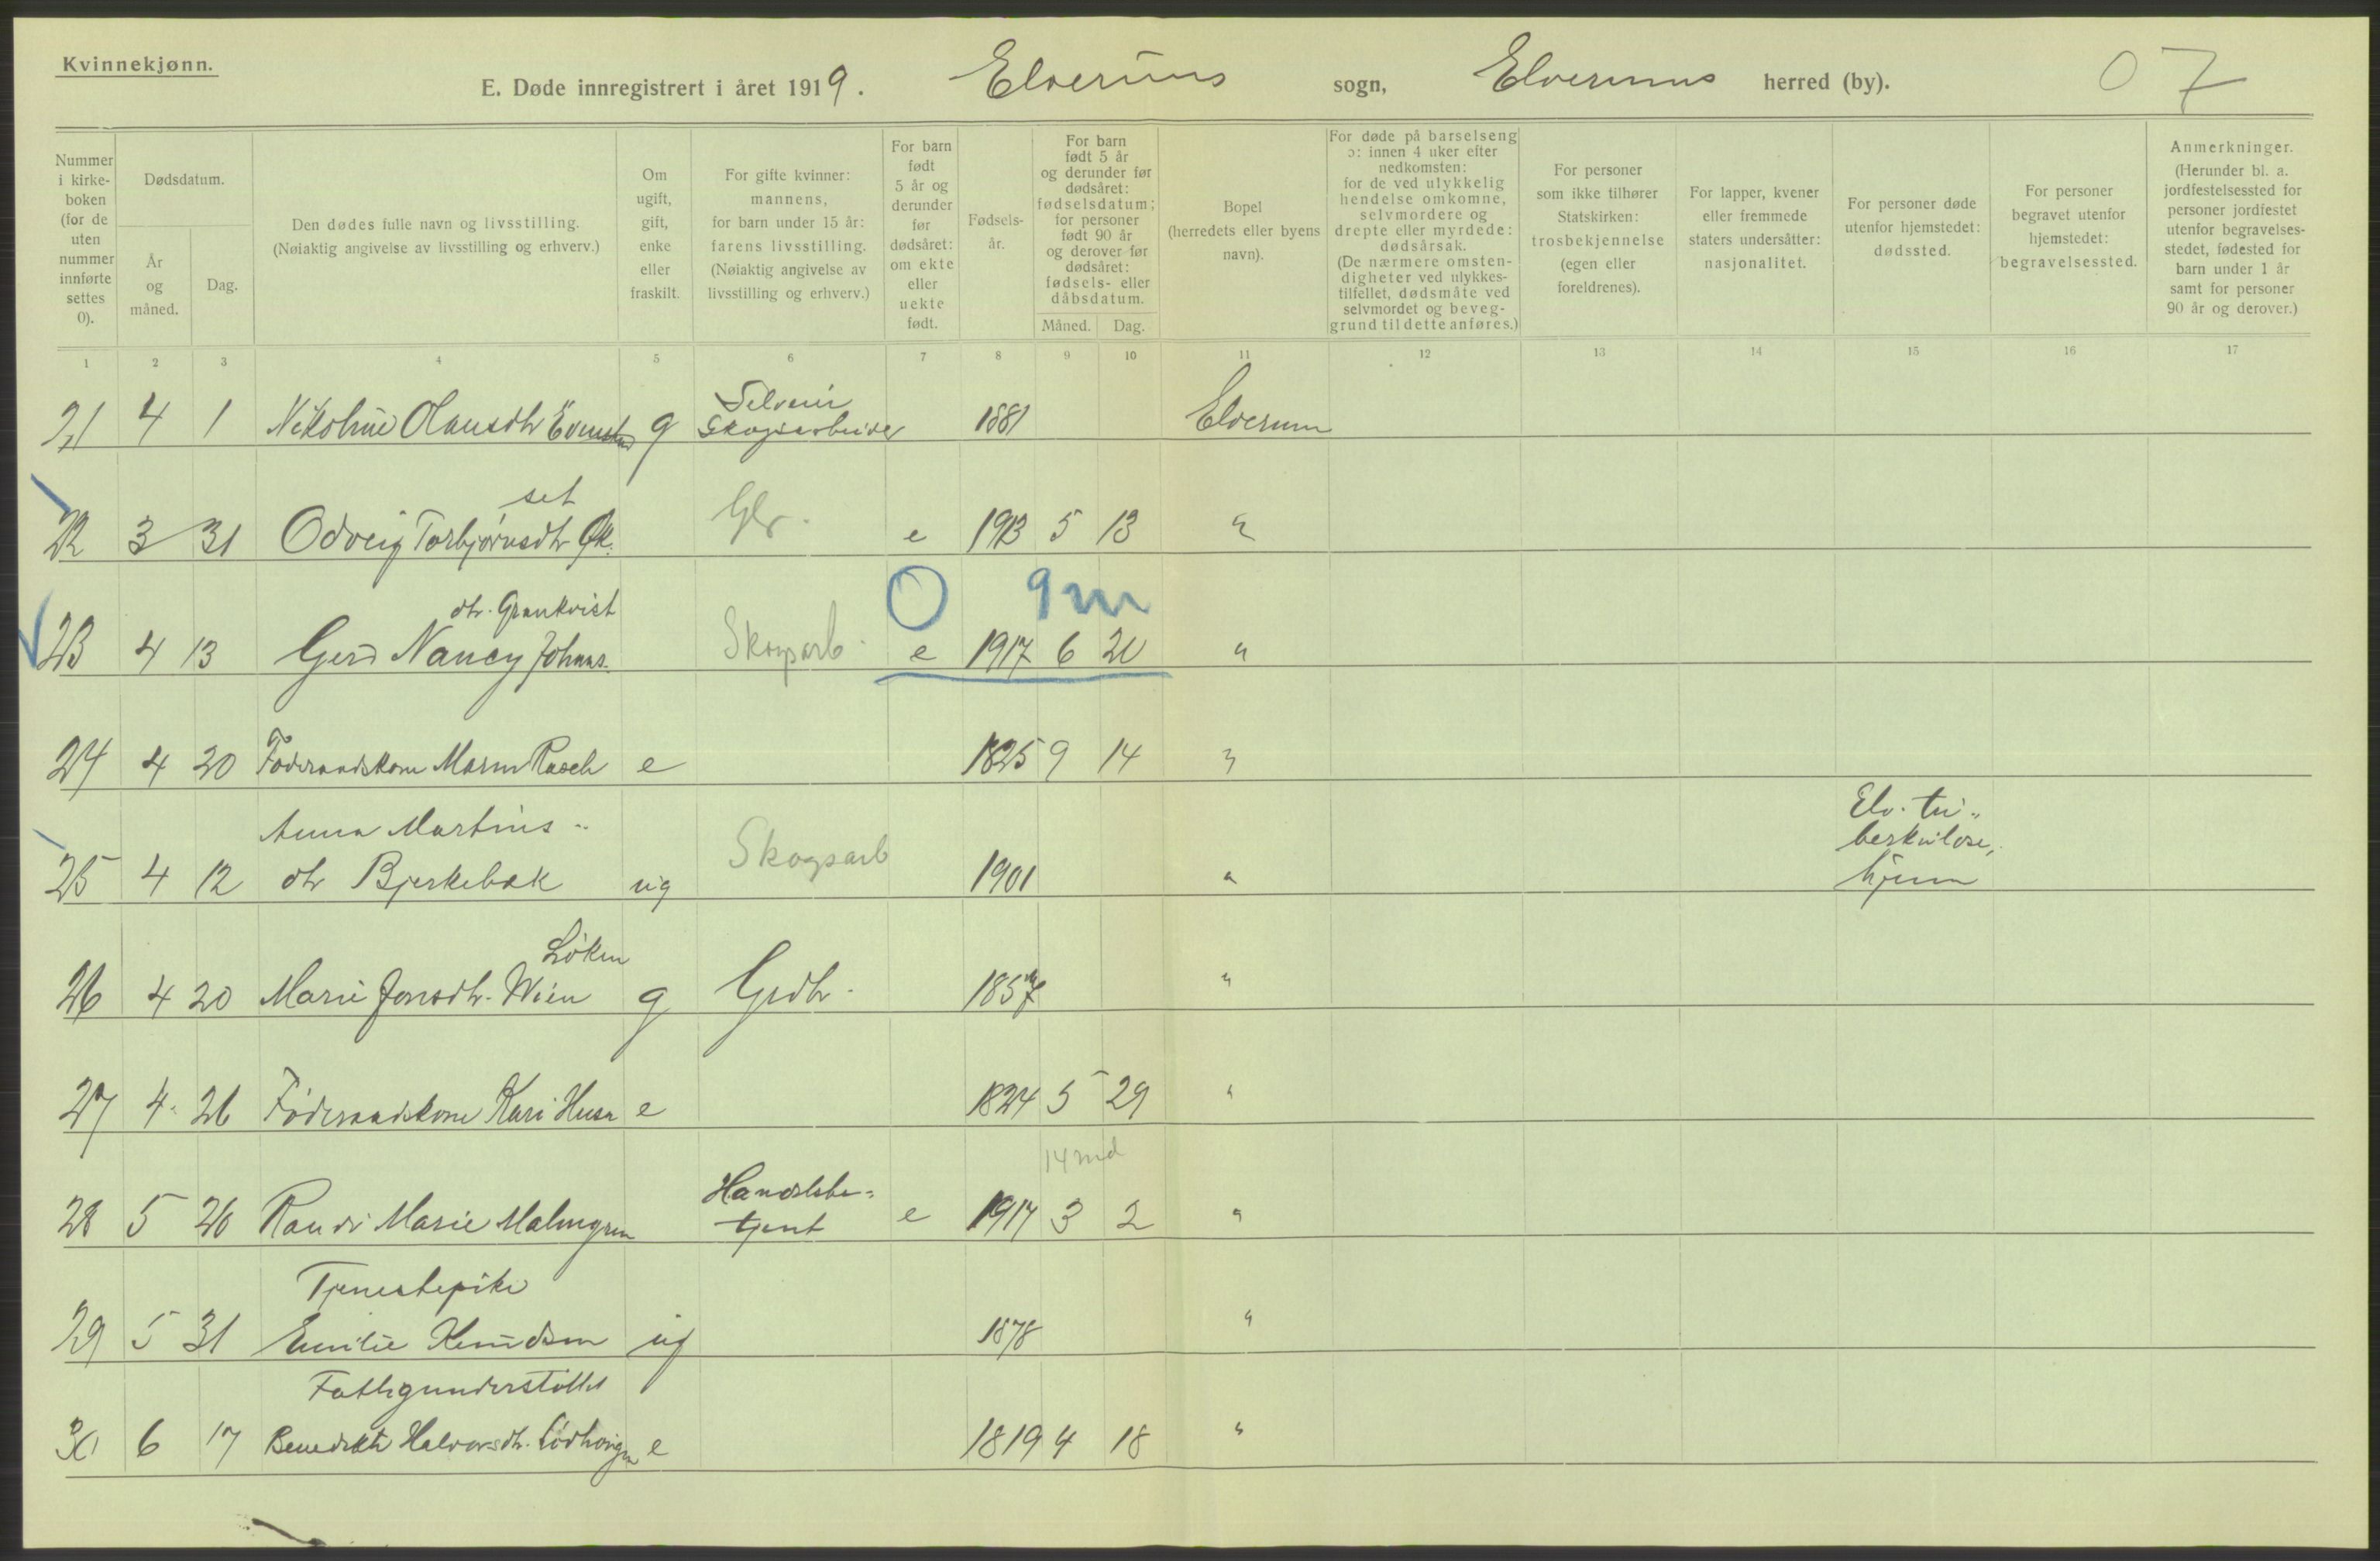 Kvinnekjønn.
E. Døde innregistrert i året 1919. Elverums sogn, Elverums herred (by). 07
Nummer i kirke- boken (for de uten nummer innførte settes 0).
Dødsdatum.
År og måned.
Dag.
Den dødes fulle navn og livsstilling.
(Nøiaktig angivelse av livsstilling og erhverv.)
Om ugift, gift, enke eller fraskilt.
For gifte kvinner: mannens, for barn under 15 år: farens livsstilling. (Nøiaktig angivelse av livsstilling og erhverv.)
For barn født 5 år og derunder før dødsåret: om ekte eller uekte født.
Fødsels- år.
For barn født 5 år og derunder før dødsåret: fødselsdatum; for personer født 90 år og derover før dødsåret: fødsels- eller dåbsdatum.
Måned. Dag.
Bopel (herredets eller byens navn).
For døde på barselseng ɔ: innen 4 uker efter nedkomsten: for de ved ulykkelig hendelse omkomne, selvmordere og drepte eller myrdede: dødsårsak. (De nærmere omsten- digheter ved ulykkes- tilfellet, dødsmåte ved selvmordet og beveg- grund til dette anføres.)
For personer som ikke tilhører Statskirken: trosbekjennelse (egen eller foreldrenes).
For lapper, kvener eller fremmede staters undersåtter: nasjonalitet.
For personer døde utenfor hjemstedet: dødssted.
For personer begravet utenfor hjemstedet: begravelsessted.
Anmerkninger. (Herunder bl. a. jordfestelsessted for personer jordfestet utenfor begravelses- stedet, fødested for barn under 1 år samt for personer 90 år og derover.)
1 2 3 4 5 6 7 8 9 10 11 12 13 14 15 16 17
Selveier
21 4 1 Nikoline Olausdtr Evenstad g Skogsarbeider 1881 Elverum
set
22 3 31 Odveig Torbjørnsdtr Øk. Gbr. e 1913 5 13 "
dtr. Grankvist 0 9m
23 4 13 Gerd Nancy Johans. Skogsarb. e 1917 6 20 "
24 4 20 Føderaadskone Maren Rasch e 1825 9 14 "
Anna Martins- Elv. tu-
berkulose,
25 4 12 dtr Bjerkebæk ug Skogsarb 1901 " hjem
Løken
26 4 20 Marie Jonsdtr. Wien g Grdbr. 1857 "
27 4 26 Føderaadskone Kari Husa e 1824 5 29 "
14 md
Handelsbe-
28 5 26 Randi Marie Malmgren tjent e 1917 3 2 "
Tjenestepike
29 5 31 Emilie Knudsen ug 1878 "
Fattigunderstøttet
30 6 17 Benedikte Halvorsdtr. e 1819 4 18 "